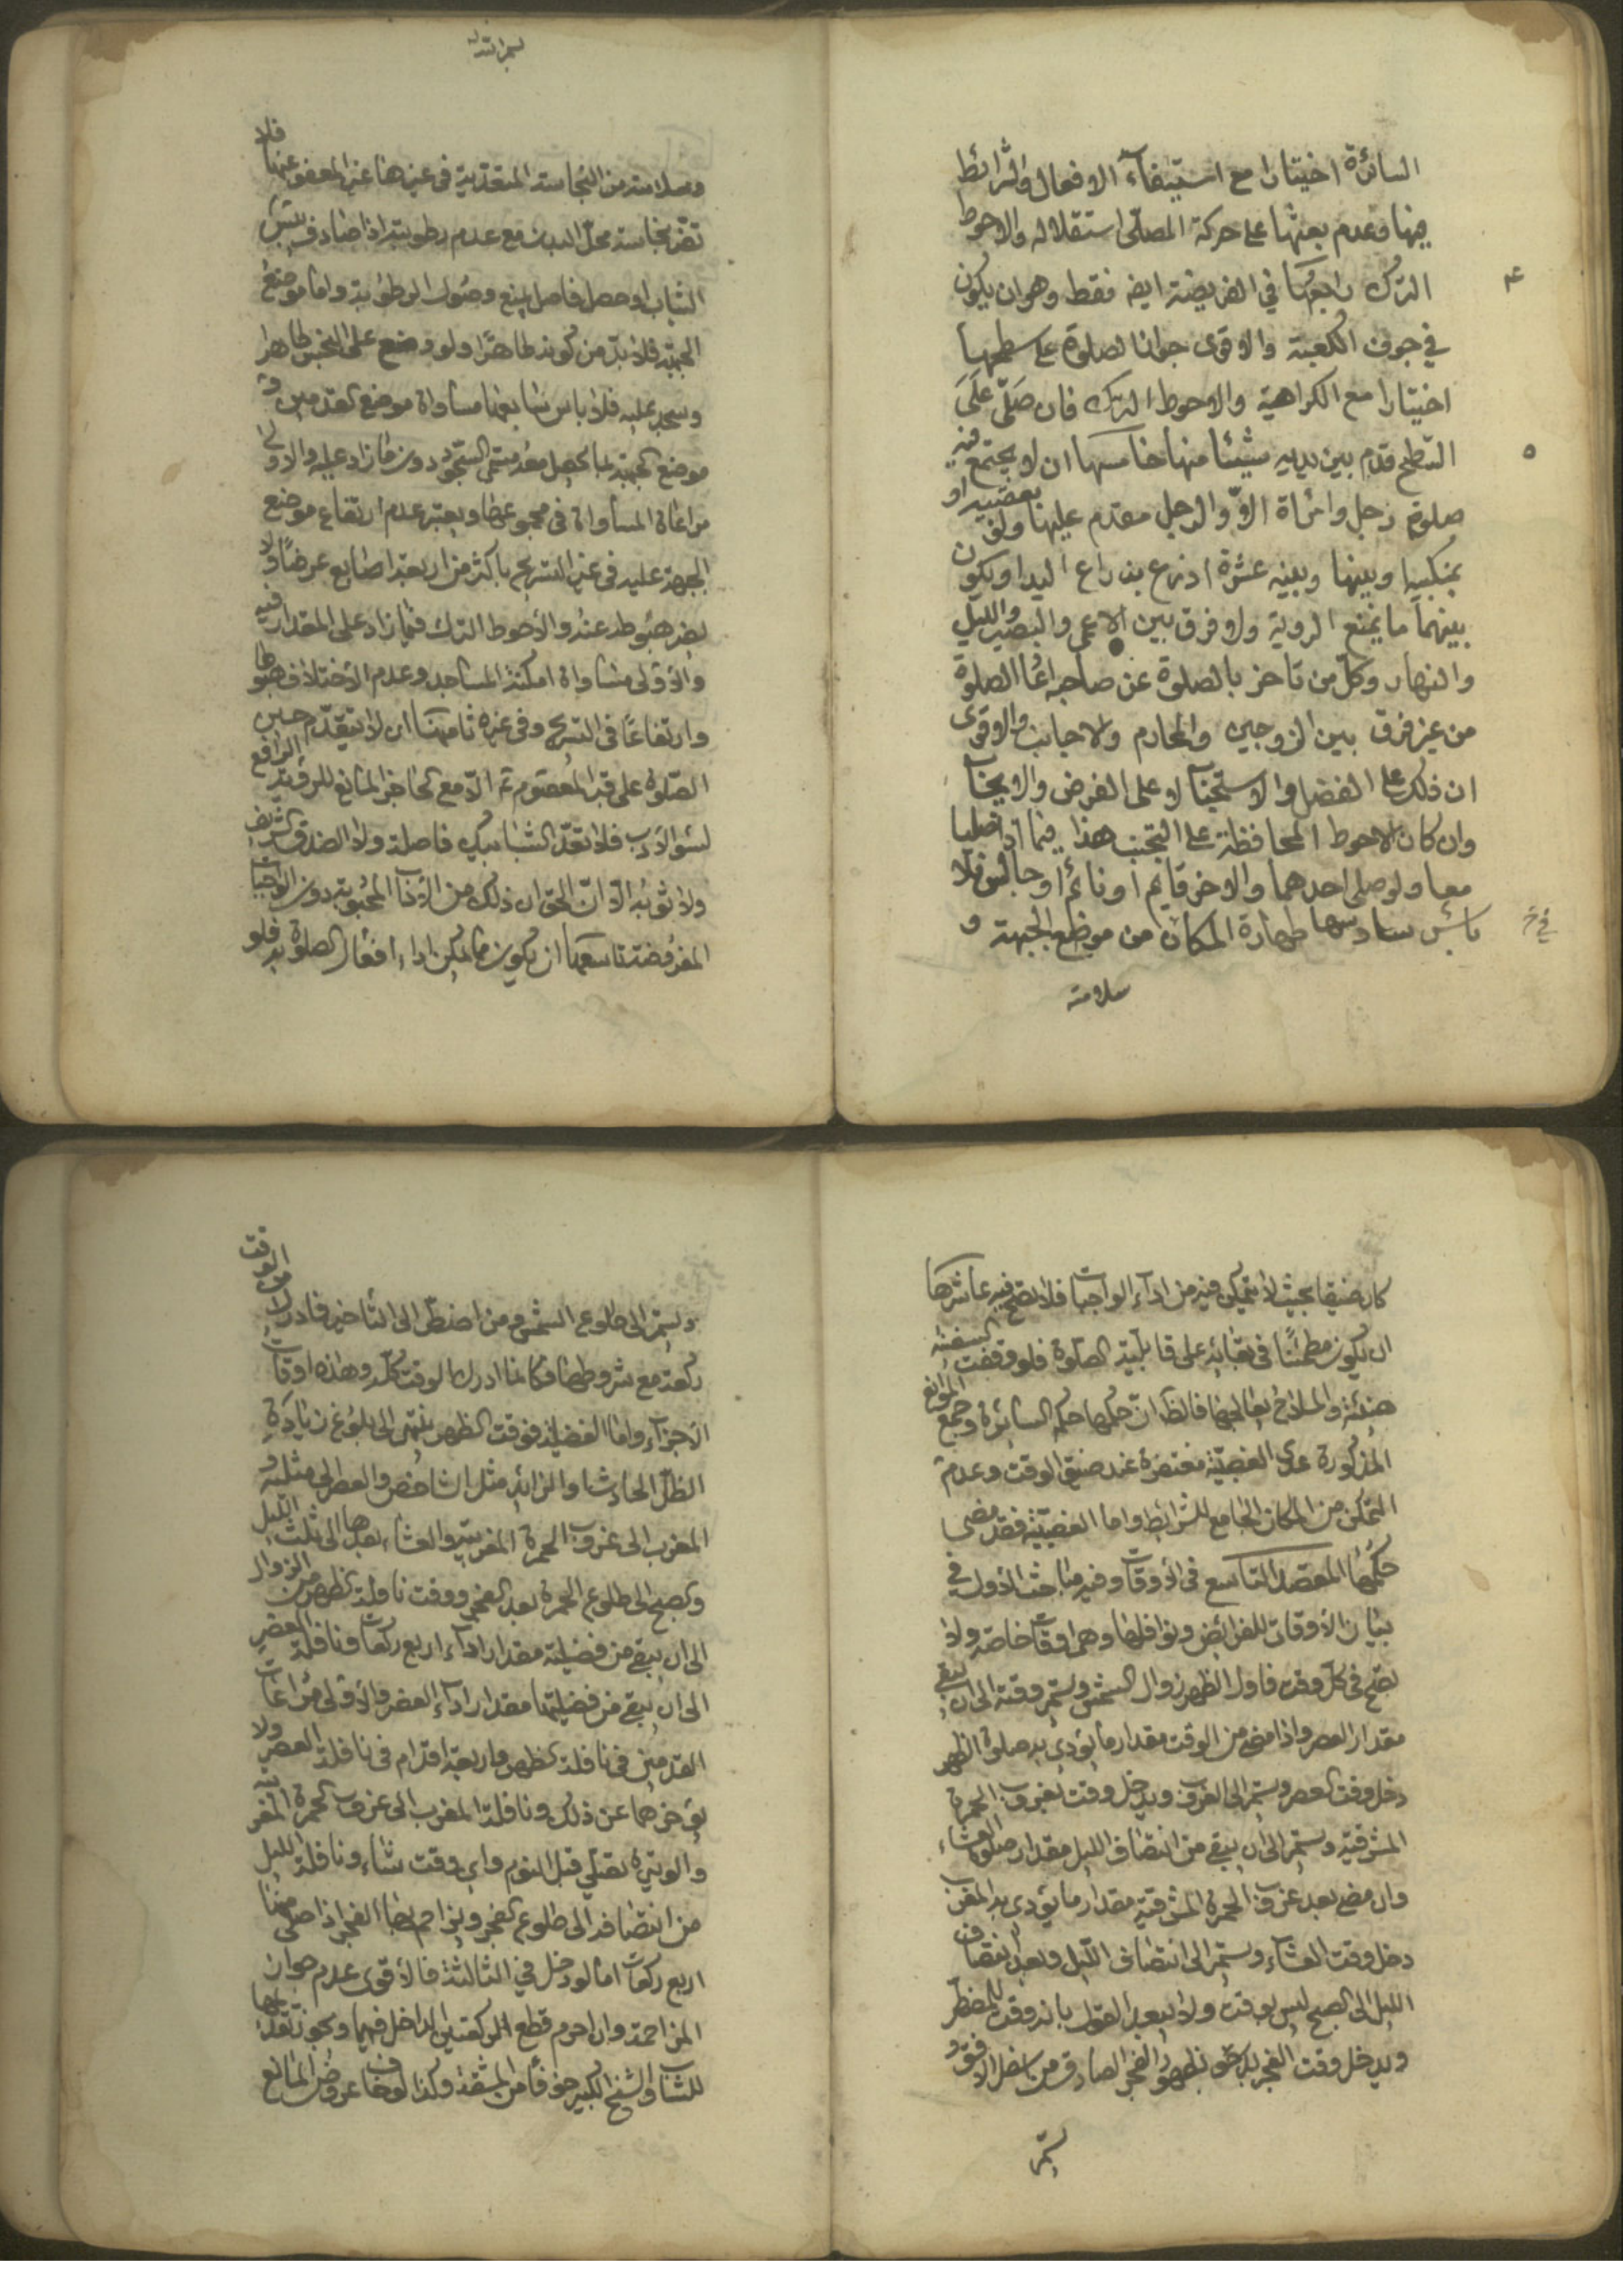 السائرة اختيارا مع استيفاء الافعال والشرائط
فيها وعدم بعثها على حركة المصلّى استقلاله والاحوط
الترك رابعها في الفريضة ايضه فقط وهو ان يكون
٤
في جوف الكعبة والاقوى جواز الصلوة على سطحها
اختيارا مع الكراهية والاحوط الترك فان صلّى على
السّطح قدّم بين يديه شيئا منها خامسها ان لا يجتمع فيه
٥
صلوة رجل وامراة الاّ والرجل مقدم عليها ولو
بمنكبيه او بينها وبينه عشرة اذرع بذراع اليد او يكون
بينهما ما يمنع الروية ولا فرق بين الاعمى والبصير والليل
والنهار وكلّ من تاخر بالصلوة عن صاحبه اعا الصلوة
من غير فرق بين الزوجين والمحارم والاجانب والاقوى
ان ذلك على الفضل والاستحباب لا على الفرض والايجاب
وان كان الاحوط المحافظة على التجنب هذا فيما اذا صليا
معا ولو صلى احدهما والاخر قايم او نائم او جالس فلا
باس سادسها طهارة المكان من موضع الجبهة و
سلامته
وسلامته من النجاسة المتعدّية في غيرها غير المعفو عنها فلا
تضر نجاسة محلّ البدن مع عدم رطوبته اذا صادف يبس
الثياب او حصل فاصل يمنع وصول الرطوبة واما موضع
الجبهة فلا بدّ من كونه طاهرا ولو وضع على النجس طاهرا
وسجد عليه فلا باس سابعها مساواة موضع القدمين و
موضع الجبهة بما يحصل معه مسمّى السّجود دون ما زاد عليه والاولى
مراعاة المساواة في مجموعها ويعتبر عدم ارتفاع موضع
الجبهة عليه في غير التسريح باكثر من اربعة اصابع عرضا ولا
يضر هبوطه عنه والاحوط الترك فيما زاد على المقدار فيه
والاولى مساواة امكنة المساجد وعدم الاختلاف هبوطا
وارتفاعًا في التسريح وفي غيره ثامنها ان لا يتقدّم حين
الصّلوة على قبر المعصوم ع الاّ مع الحاجز المانع للرؤية الرافع
لسوء الادب فلا تعدّ الشبابيك فاصلة ولا الصندوق الشريف
ولا ثوبه الاّ انّ الحق ان ذلك من الاداب المحبوبة دون الواجبات
المفروضة تاسعها ان يكون مما يمكن اداء افعال الصلوة به فلو
كان ضيقا بحيث لا يتمكن فيه من اداء الواجبات فلا تصح فيه عاشرها
ان يكون مطمئنّا في بقائه على قابليّة الصّلوة فلو وقفت السفينة
المذكورة عدى الغصبيّة مغتفرة عند ضيق الوقت وعدم
التمكن من المكان الجامع للشرائط واما الغصبيّة فقد مضى
حكمها المقصد التاسع في الاوقات وفيه مباحث الاول في
بيان الاوقات للفرائض ونوافلها وهى اوقات خاصة ولا
تصح في كلّ وقت فاول الظهر زوال الشمس ويستمر وقته الى ان يبقى
مقدار العصر واذا مضى من الوقت مقدار ما يؤدى به صلوة الظهر
دخل وقت العصر ويستمر الى الغروب ويدخل وقت المغرب بغروب الحمرة
المشرقية ويستمر الى ان يبقى من انتصاف الليل مقدار صلوة العشاء
وان مضى بعد غروب الحمرة المشرقية مقدار ما يؤدى به المغرب
دخل وقت العشاء ويستمر الى انتصاف اللّيل وبعد انتصاف
الليل الى الصبح ليس بوقت ولا يبعد القول بانه وقت للمضطر
ويدخل وقت الفجر بظهور الفجر الصادق من الافق و
يستمر
ويستمر الى طلوع الشمس ومن اضطر الى التاخير فادرك من الوقت
ركعة مع شروطها فكانما ادرك الوقت كلّه وهذه اوقات
الاجزاء واما الفضيلة فوقت الظهر ينتهى الى بلوغ زيادة
الظلّ الحادث او الزايد مثل الشاخص والعصر الى مثليه و
المغرب الى غروب الحمرة المغربية والعشاء بعدها الى ثلث الليل
والصبح الى طلوع الحمرة بعد الفجر ووقت نافلة الظهر من الزوال
الى ان يبقى من فضيلته مقدار اداء اربع ركعات ونافلة العصر
الى ان يبقى من فضيلتها مقدار اداء العصر والاولى مراعات
القدمين في نافلة الظهر واربعة اقدام في نافلة العصر ولا
يؤخرهما عن ذلك ونافلة المغرب الى غروب الحمرة المغربية
والوتيرة تصلّى قبل النوم واى وقت شاء ونافلة الليل
من انتصافه الى طلوع الفجر ويزاحم بها الفجر اذا صلى منها
اربع ركعات اما لو دخل في الثالثة فالاقوى عدم جواز
المزاحمة وان احرم قطع الركعتين الداخل فيها ويجوز تقديمها
للشاب والشيخ الكبير خوفًا من المشقة وكذا لو خاف عروض المانع